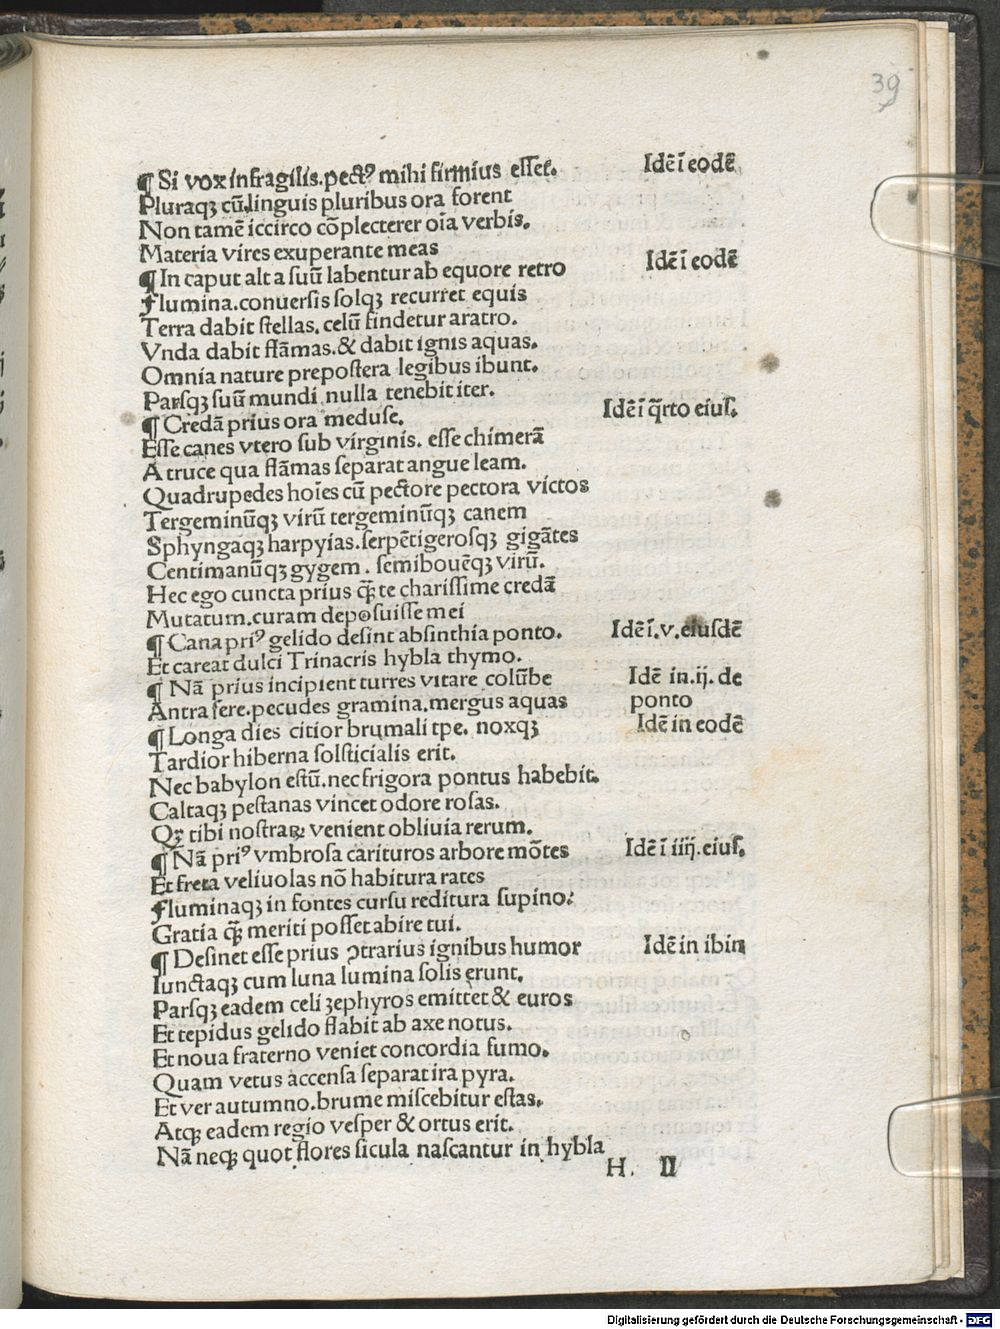 39
¶ Si vox infragilis.pectꝰ mihi firmius eſſet. Idē ī eodē
Pluraqꝫ cū linguis pluribus ora forent
Non tamē iccirco cōplecterer oīa verbis.
Materia vires exuperante meas
¶ In caput alt a ſuū labentur ab equore retro Idē ī eodē
Flumina.conuerſis ſolqꝫ recurret equis
Terra dabit ſtellas. celū findetur aratro.
Vnda dabit flāmas.& dabit ignis aquas.
Omnia nature prepoſtera legibus ibunt.
Parſqꝫ ſuū mundi nulla tenebit iter.
¶ Credā prius ora meduſe. Idē ī q̄rto eiuſ.
Eſſe canes vtero ſub virginis. eſſe chimerā
A truce qua flāmas ſeparat angue leam.
Quadrupedes hoīes cū pectore pectora victos
Tergeminūqꝫ virū tergeminūqꝫ canem
Sphyngaqꝫ harpyias.ſerpētigeroſqꝫ gigātes
Centimanūqꝫ gygem. ſemibouēqꝫ virū.
Hec ego cuncta prius q̄ꝫ te chariſſime credā
Mutatum.curam depoſuiſſe mei
¶ Cana priꝰ gelido deſint abſinthia ponto. Idē ī.v.eiuſdē
Et careat dulci Trinacris hybla thymo.
¶ Nā prius incipient turres vitare colūbe Idē in.ij. de
Antra fere.pecudes gramina.mergus aquas ponto
¶ Longa dies citior brumali tpe. noxqꝫ Idē in eodē
Tardior hiberna ſolſticialis erit.
Nec babylon eſtū.nec frigora pontus habebit.
Caltaqꝫ peſtanas vincet odore roſas.
Qꝫ tibi noſtraꝝ venient obliuia rerum.
¶ Nā priꝰ vmbroſa carituros arbore mōtes Idē ī iiij.eiuſ.
Et freta veliuolas nō habitura rates
Fluminaqꝫ in fontes curſu reditura ſupino:
Gratia q̄ꝫ meriti poſſet abire tui.
¶ Deſinet eſſe prius ꝯtrarius ignibus humor Idē in ibin
Iunctaqꝫ cum luna lumina ſolis erunt.
Parſqꝫ eadem celi ꝫephyros emittet & euros
Et tepidus gelido flabit ab axe notus.
Et noua fraterno veniet concordia fumo.
Quam vetus accenſa ſeparat ira pyra.
Et ver autumno.brume miſcebitur eſtas.
Atqꝫ eadem regio veſper & ortus erit.
Nā neqꝫ quot flores ſicula naſcantur in hybla
H. II
Digitalisierung gefördert durch die Deutsche Forschungsgemeinschaft - DFG